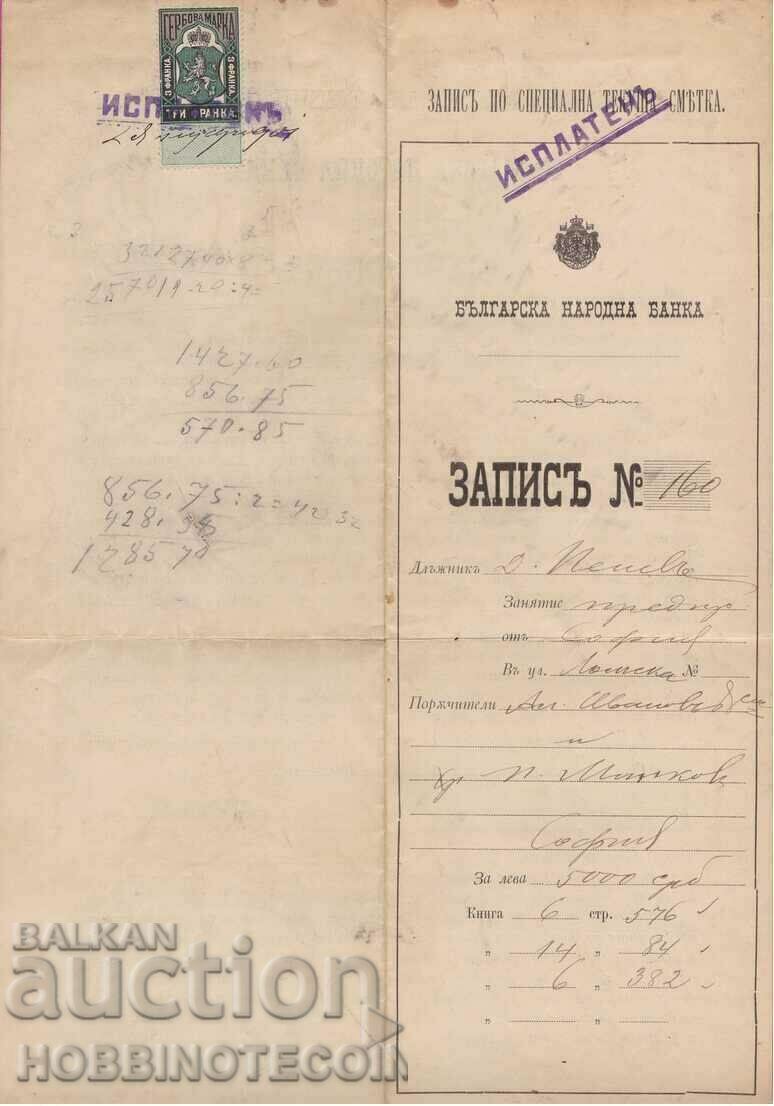 ГЕРБОВА МАРКА
3 ФРАНКА.
3 ФРАНКА.
ТРИ ФРАНКА.
ИСПЛАТЕНЪ
1427.60
856.75
570.85
856.75:2=42
428.
128570
ЗАПИСЪ ПО СПЕЦИАЛНА ТЕКУЩА СМѢТКА.
ИСПЛАТЕНЪ
БЪЛГАРСКА НАРОДНА БАНКА
ЗАПИСЪ № 160
Длъжникъ Д. Пешевъ
Занятие предпр
отъ София
Въ ул. Ломска №
Порѫчители Ал. Ивановъ
и
Хр П.
София
За лева 5000 срб
Книга 6 стр. 576
„ 14 „ 84
„ 6 „ 382
„ „
BALKAN
auction
HOBBINOTECOIN